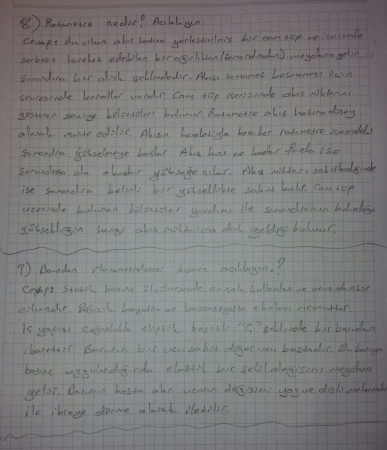 8) Rotametre nedir? Açıklayın.
Cevap: Bu cihaz akış hattına yerleştirilmiş bir cam tüp ve içerisinde
serbest hareket edebilen bir ağırlıktan (şamandıradan) meydana gelir.
Şamandıra bir disk şeklindedir. Akışı tamamen kesmemesi için
çevresinde kanallar vardır. Cam tüp üzerinde akış miktarını
gösteren seviye bölüntüleri bulunur. Rotametre akış hattına düşey
olarak monte edilir. Akışın hareketiyle beraber rotametre içerisindeki
şamandıra yükselmeye başlar. Akış hızı ne kadar fazla ise
şamandıra da o kadar yükseğe çıkar. Akış miktarı sabitlendiğinde
ise şamandıra belirli bir yükseklikte sabit kalır. Cam tüp
üzerinde bulunan bölüntüler yardımı ile şamandıranın bulunduğu
yüksekliğin hangi akış miktarına denk geldiği bulunur.
9) Bourdon Manometrelerini kısaca açıklayın.?
Cevap: Statik basınç ölçülmesinde en çok kullanılan ve ucuz olan bir
cihazdır. Değişik boyutta ve hassasiyette olanları mevcuttur.
İç yapısı çoğunlukla eliptik kesitli "C" şeklinde bir borudan
ibarettir. Borunun bir ucu sabit diğer ucu boştadır. Bu boruya
basınç uygulandığında elastik bir şekil değişimi meydana
gelir. Borunun boşta olan ucunun değişimi yay ve dişli mekanizma
ile ibreye dönme olarak iletilir.